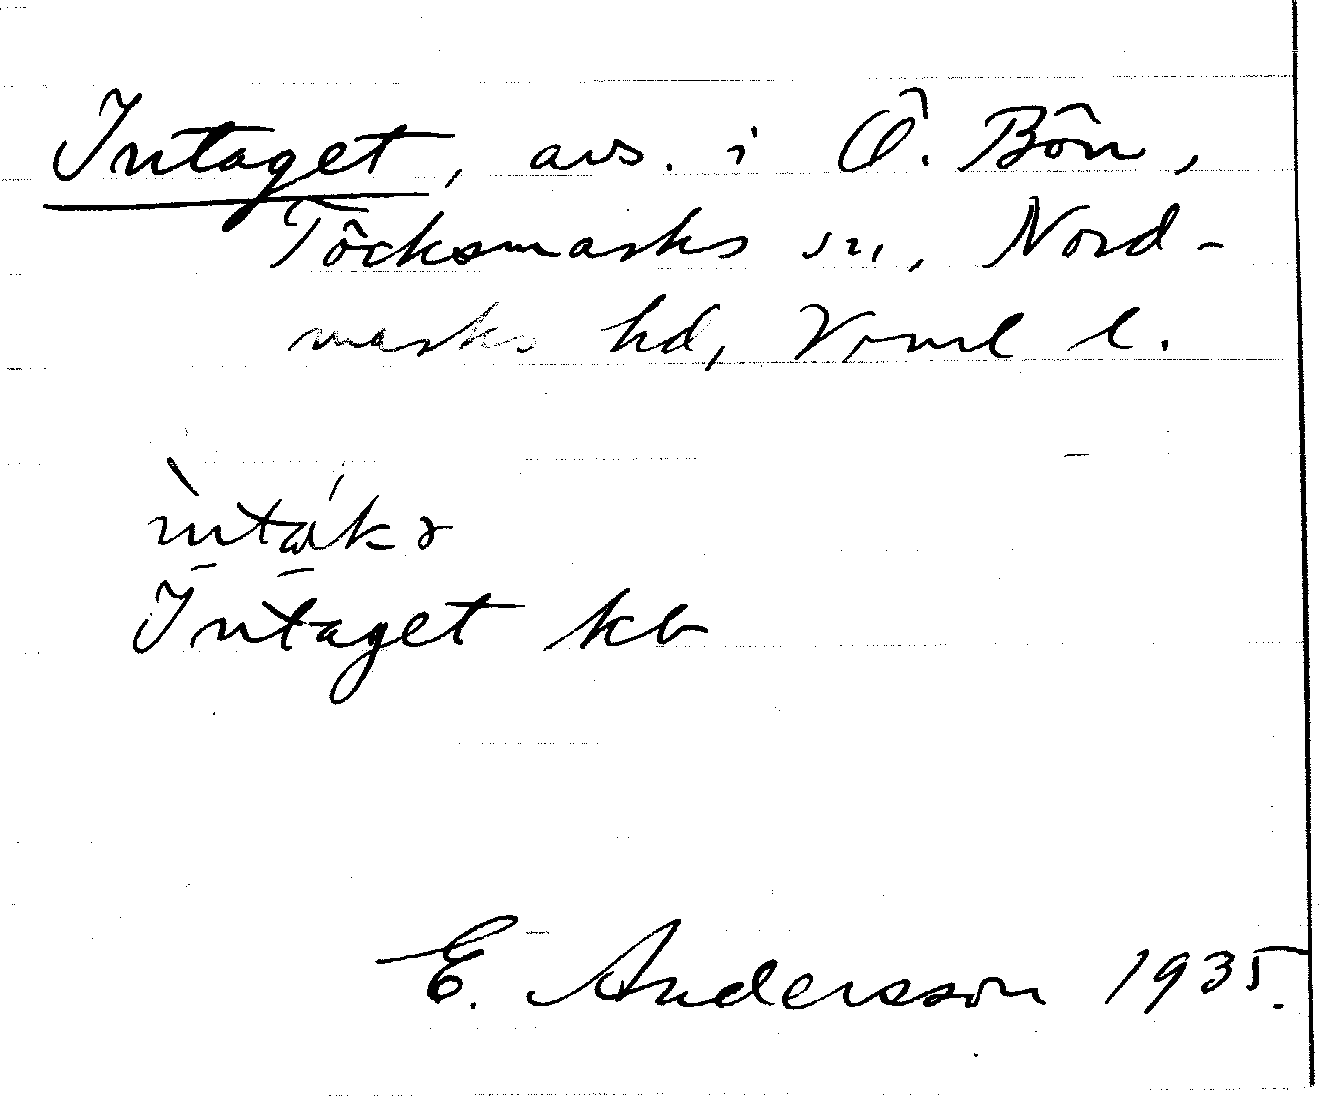 Intaget, avs. i Ö. Bön,
Töcksmarks sn, Nord-
marks hd, Vrml l.
Intaget kb
E. Andersson 1935.